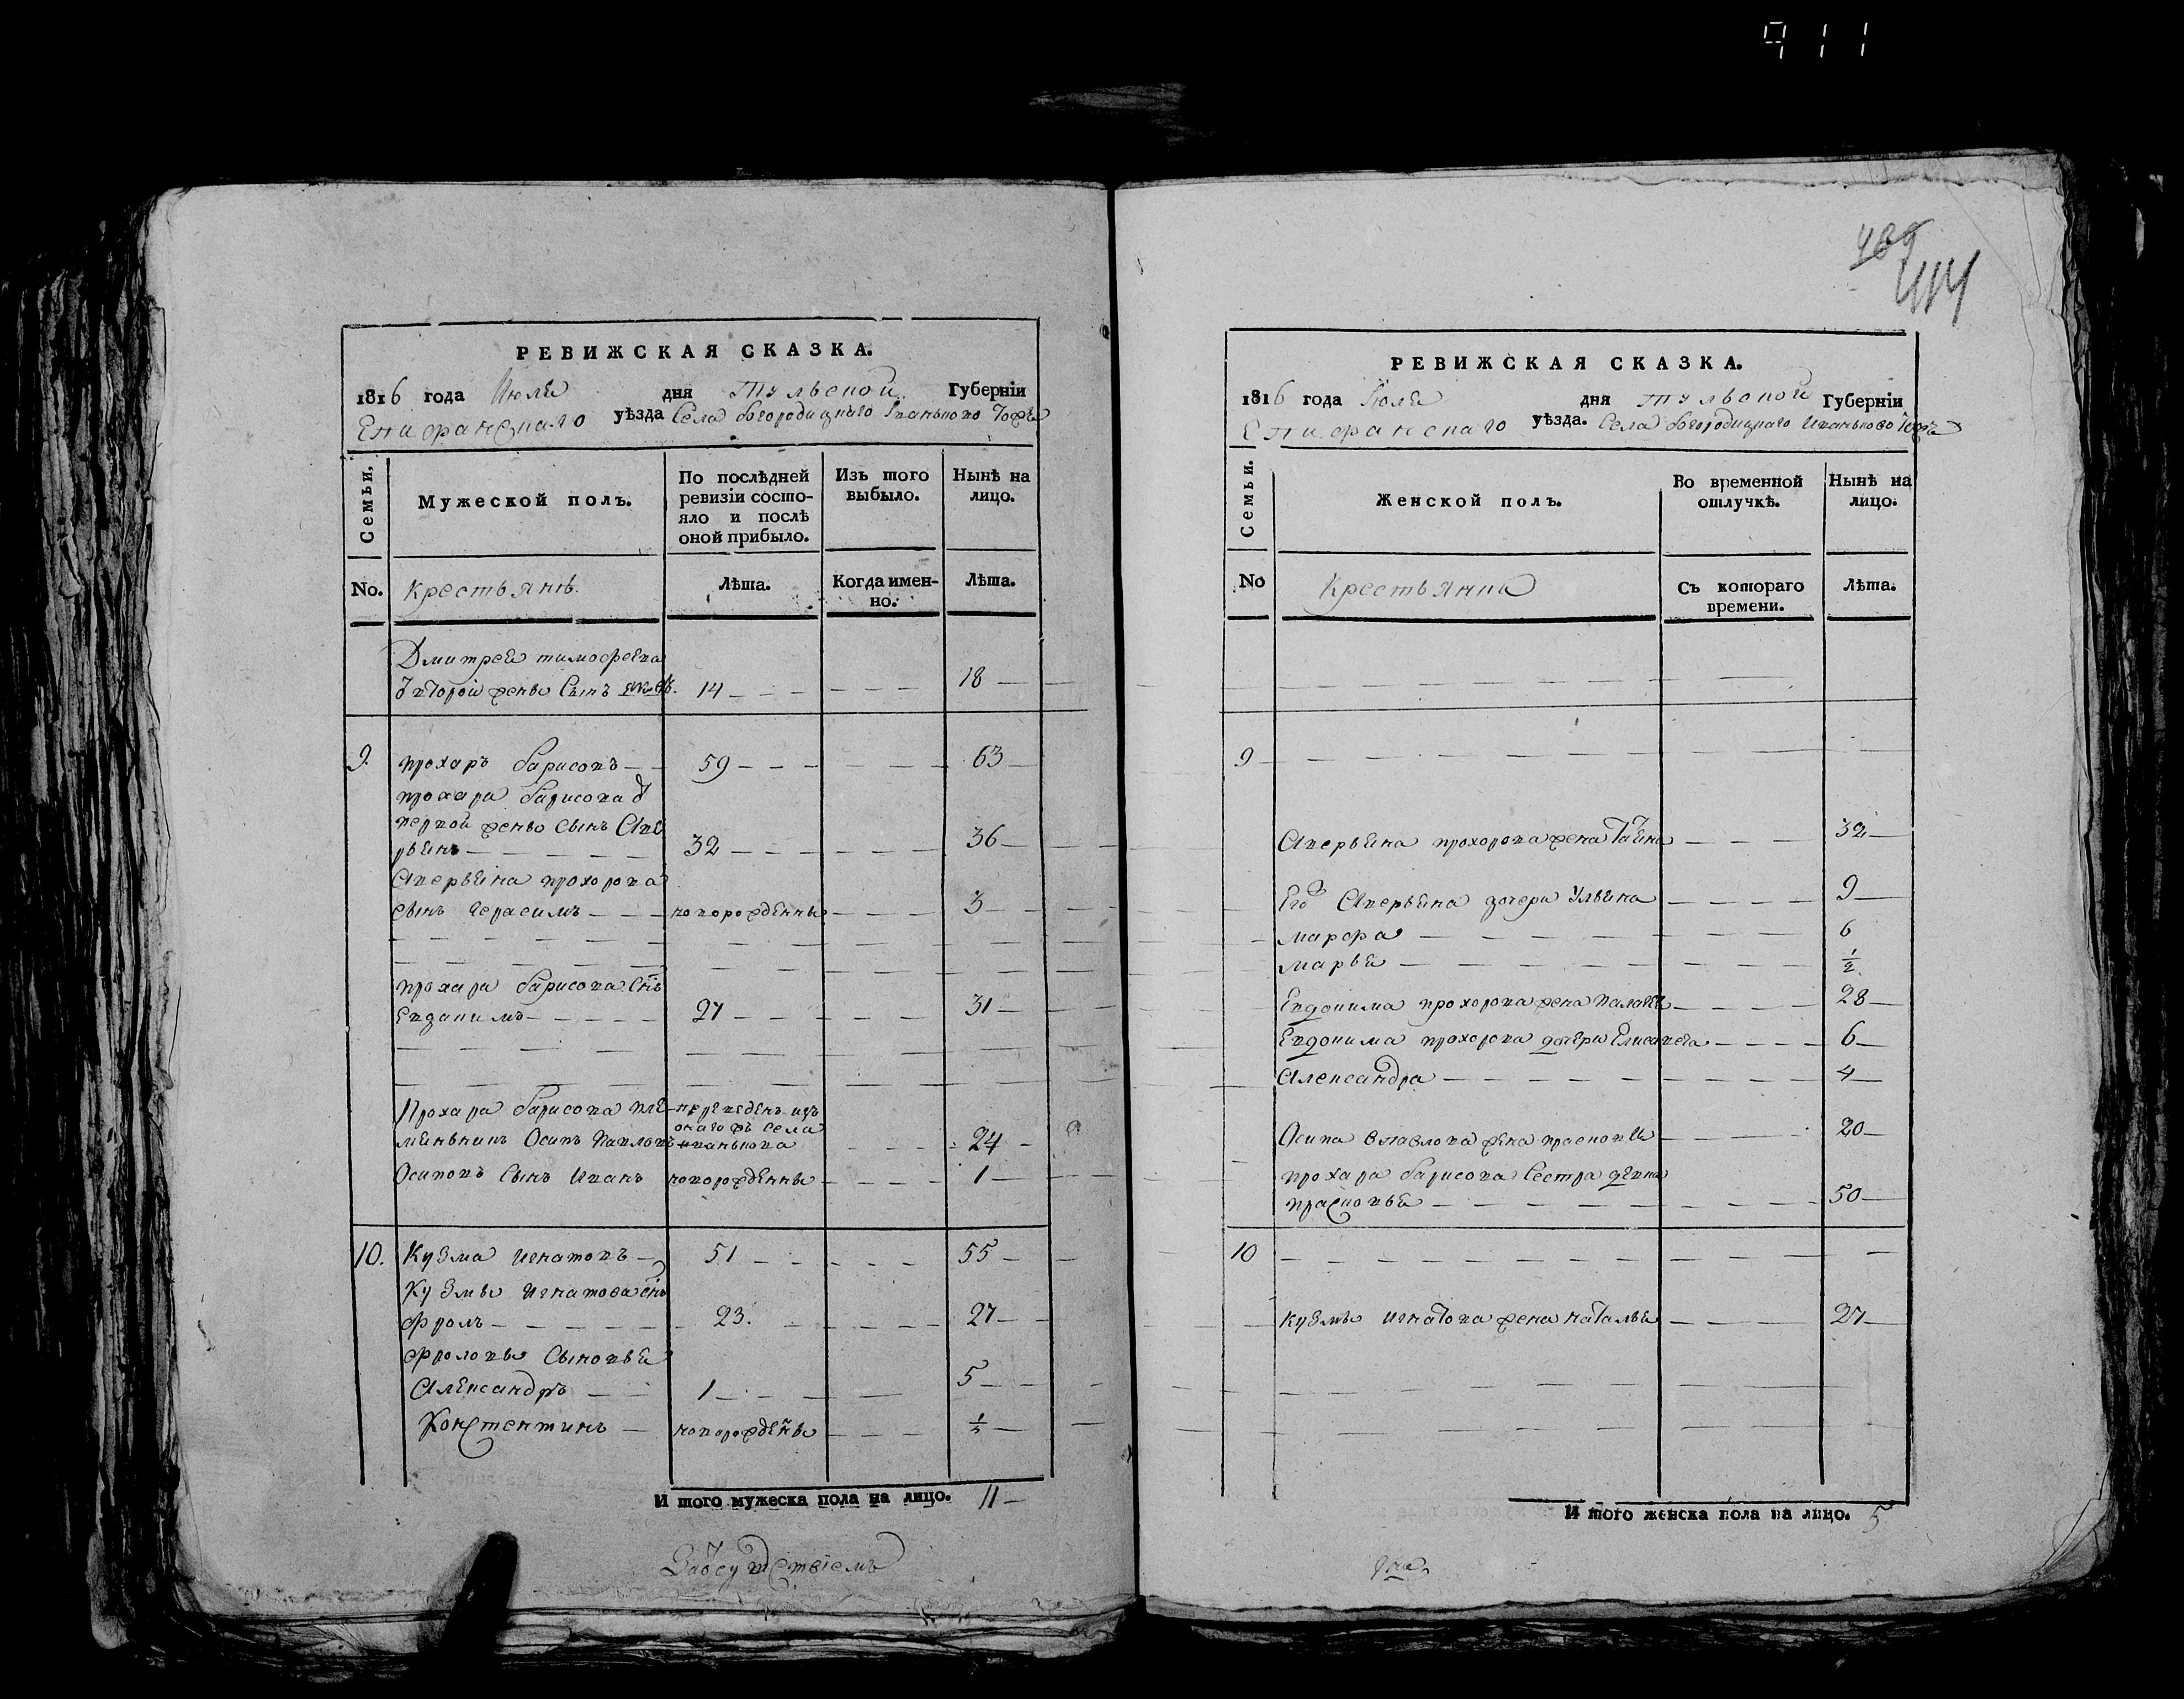 911
РЕВИЖСКАЯ СКАЗКА.
1816 года Июля дня Тульской Губерніи
Епифанскаго уѣзда Села богородицкаго Иваньково тожъ
Семьи.
Мужеской полъ.
По послѣдней ревизіи состояло и послѣ оной прибыло.
Изъ того выбыло.
Нынѣ на лицо.
No.
крестьянѣ.
Лѣта.
Когда именно.
Лѣта.
Дмитрея тимофеева
второй жены Сынъ 14 18
9. прохаръ барисовъ 59 63
прохара барисова
первой жены сынъ Аве
рьянъ 32 36
Аверьяна прохорова
сынъ герасимъ новорожденны 3
прохара барисова Снъ
Евдакимъ 27 31
Прохара барисова пле переведенъ изъ
онагожъ села
меньникъ Осипъ павловъ иванькова 24
Осиповъ Сынъ Иванъ новорожденны 1
10. Кузма игнатовъ 51 55
Кузмы игнатова снъ
фролъ 23. 27
фроловы Сыновья
Александръ 1 5
Констентинъ новорождены
И того мужеска пола на лицо. 11
409
414
РЕВИЖСКАЯ СКАЗКА.
1816 года Июля дня тульской Губерніи
Епифанскаго уѣзда. Села богородицкаго Иваньково тожъ
Семьи.
Женской полъ.
Во временной отлучкѣ.
Нынѣ на лицо.
No
Крестьянки
Съ котораго времени.
Лѣта.
9
Аверьяна прохорова жена Татьяна 32
Его Аверьяна дочери Ульяна 9
марфа 6
марья 1/2
Евдокима прохорова жена палагея 28
Евдокима прохорова дочери Елисавета 6
Александра 4
Осипа павлова жена прасковья 20
прохара барисова Сестра девка
прасковья 50
10
кузмы игнатова жена наталья 27
И того женска пола на лицо. 5